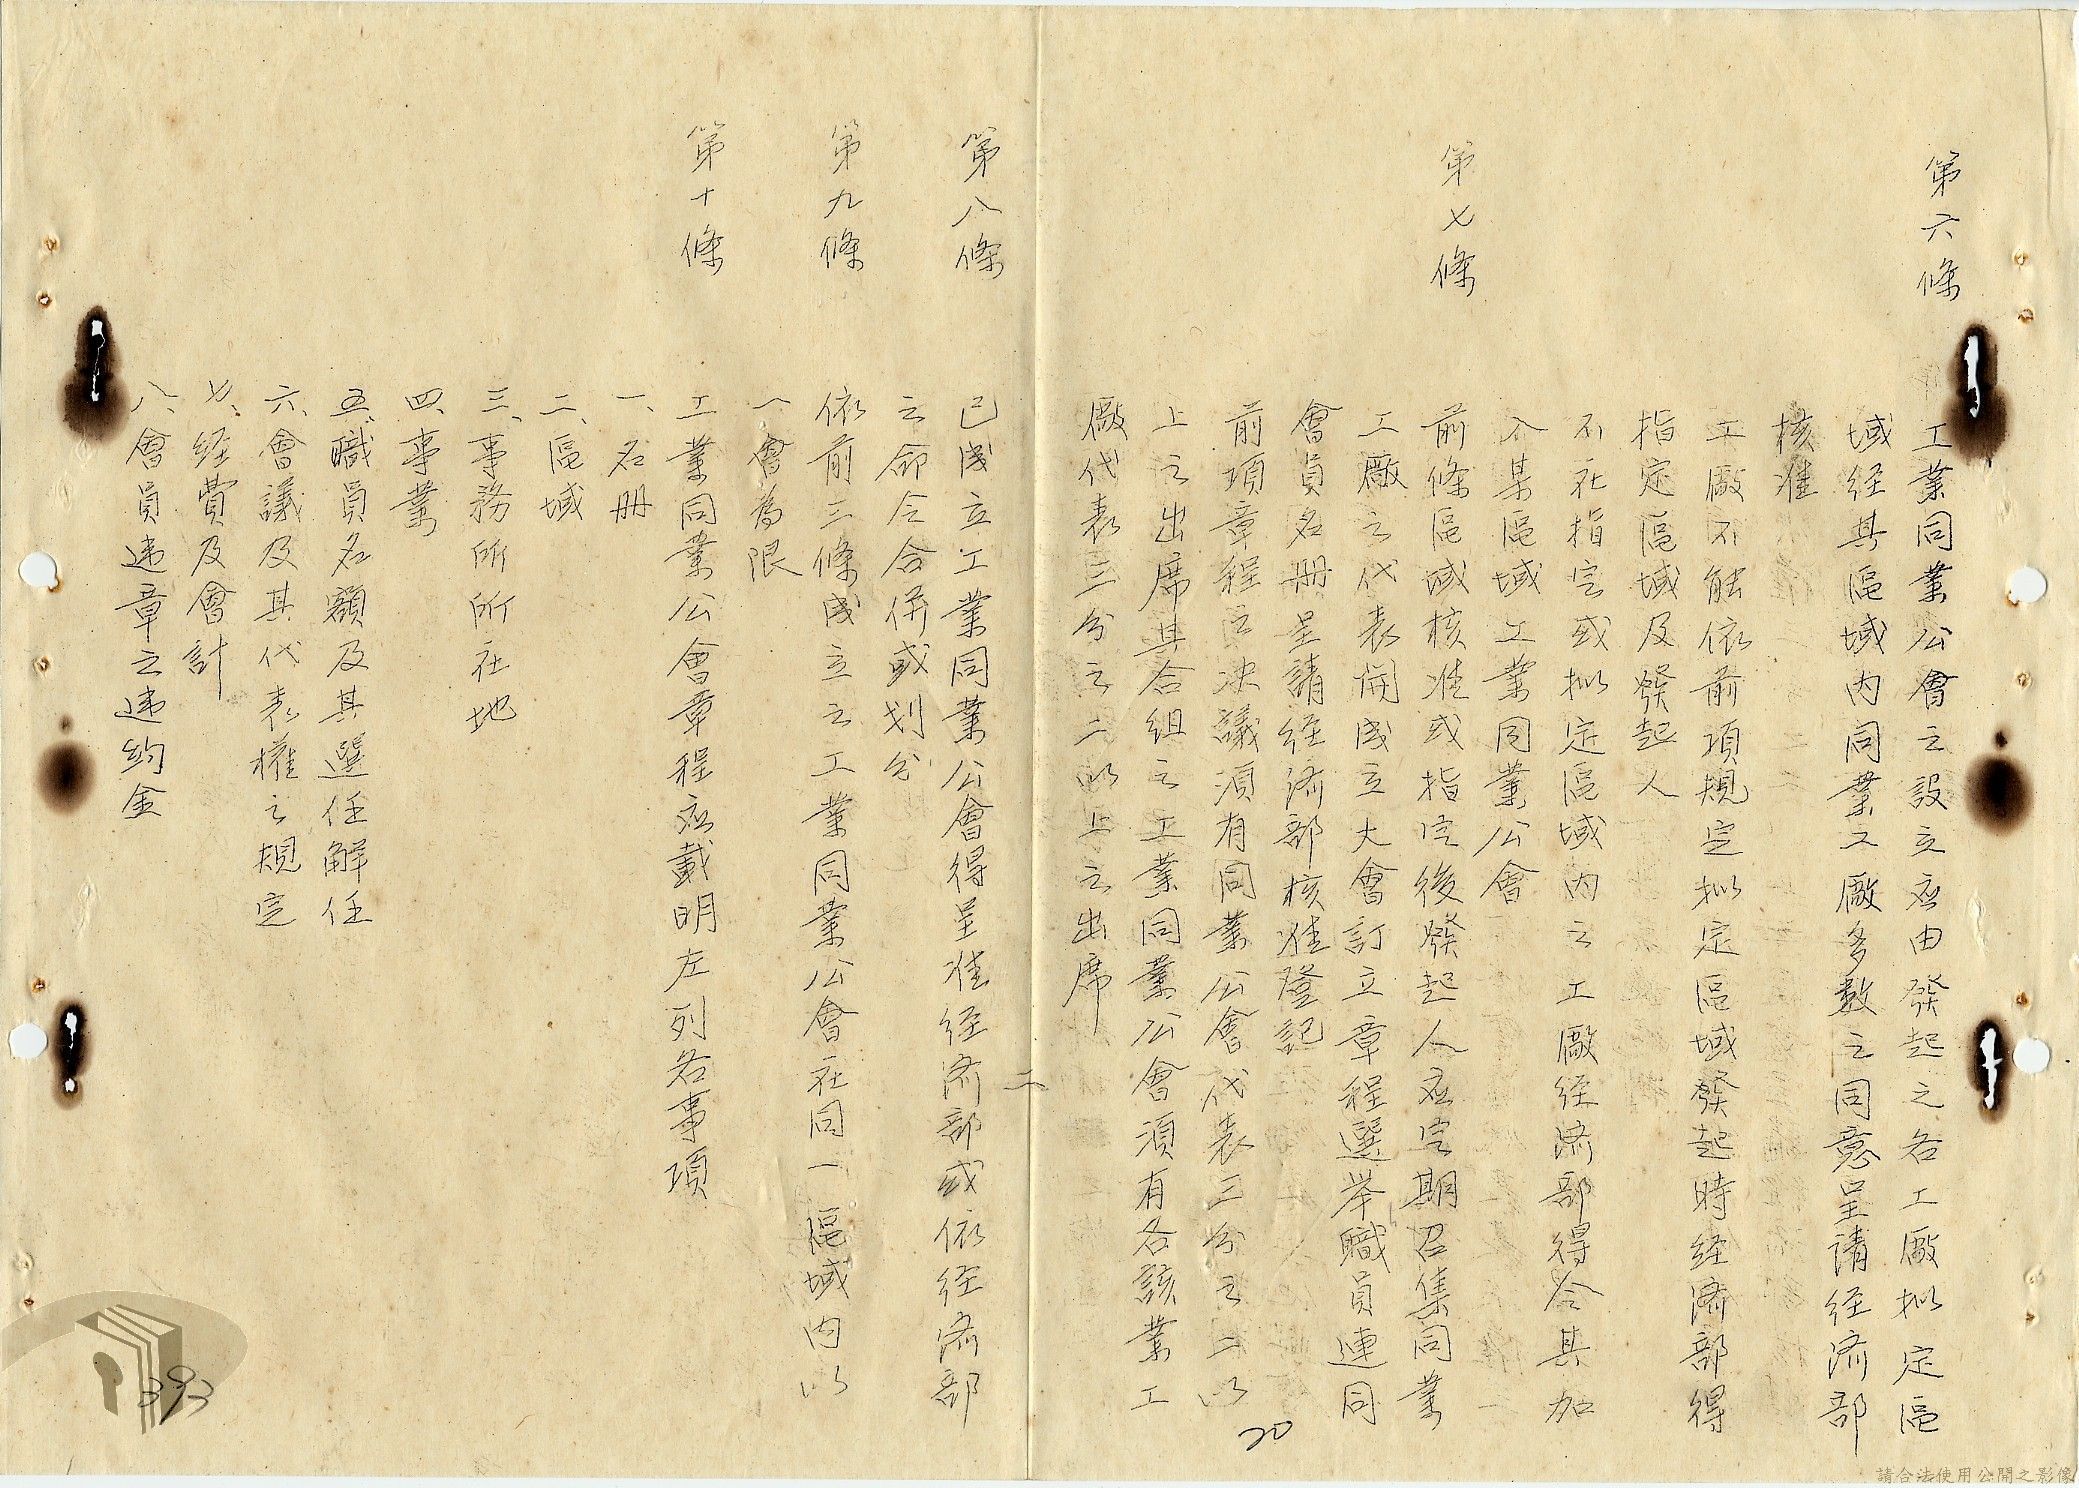 第六條　工業同業公會之設立应由發起之各工廠拟定區
域经其區域内同業工廠多数之同意呈请经济部
核准
工廠不能依前項規定拟定區域發起時经济部得
指定區域及發起人
不在指定或拟定區域内之工廠经济部得令其加
入某區域工業同業公會
第七條　前條區域核准或指定後發起人应定期召集同業
工廠之代表開成立大會訂立章程選举職員連同
會員名册呈請经济部核准登記
前項章程之决議須有同業公會代表三分之二以
上之出席其合組之工業同業公會須有各該業工
廠代表三分之二以上之出席
20
二
第八條　已成立工業同業公會得呈准经济部或依经济部
之命令合併或划分
第九條　依前三條成立之工業同業公會在同一區域内以
一會為限
第十條　工業同業公會章程应載明左列各事項
一、名册
二、區域
三、事務所所在地
四、事業
五、職員名額及其選任解任
六、會議及其代表權之規定
七、经費及會計
八、會員违章之违約金
393
請合法使用公開之影像